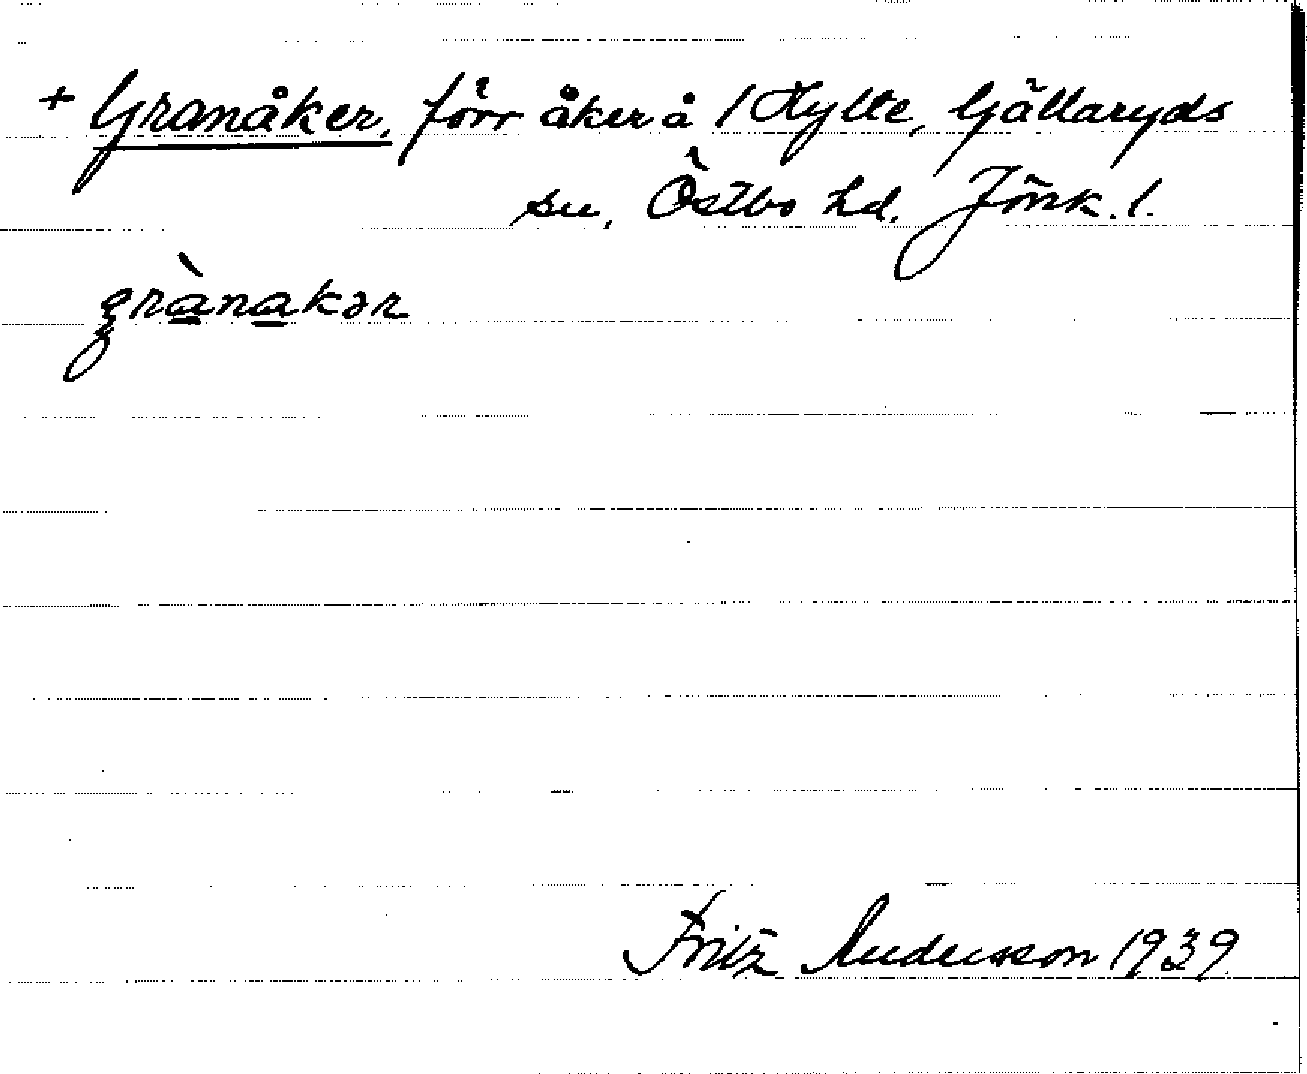 + Granåker, förr åker å 1 Hylte, Gällaryds
sn, Östbo hd. Jönk. l.
grànakər
Fritz Andersson 1939